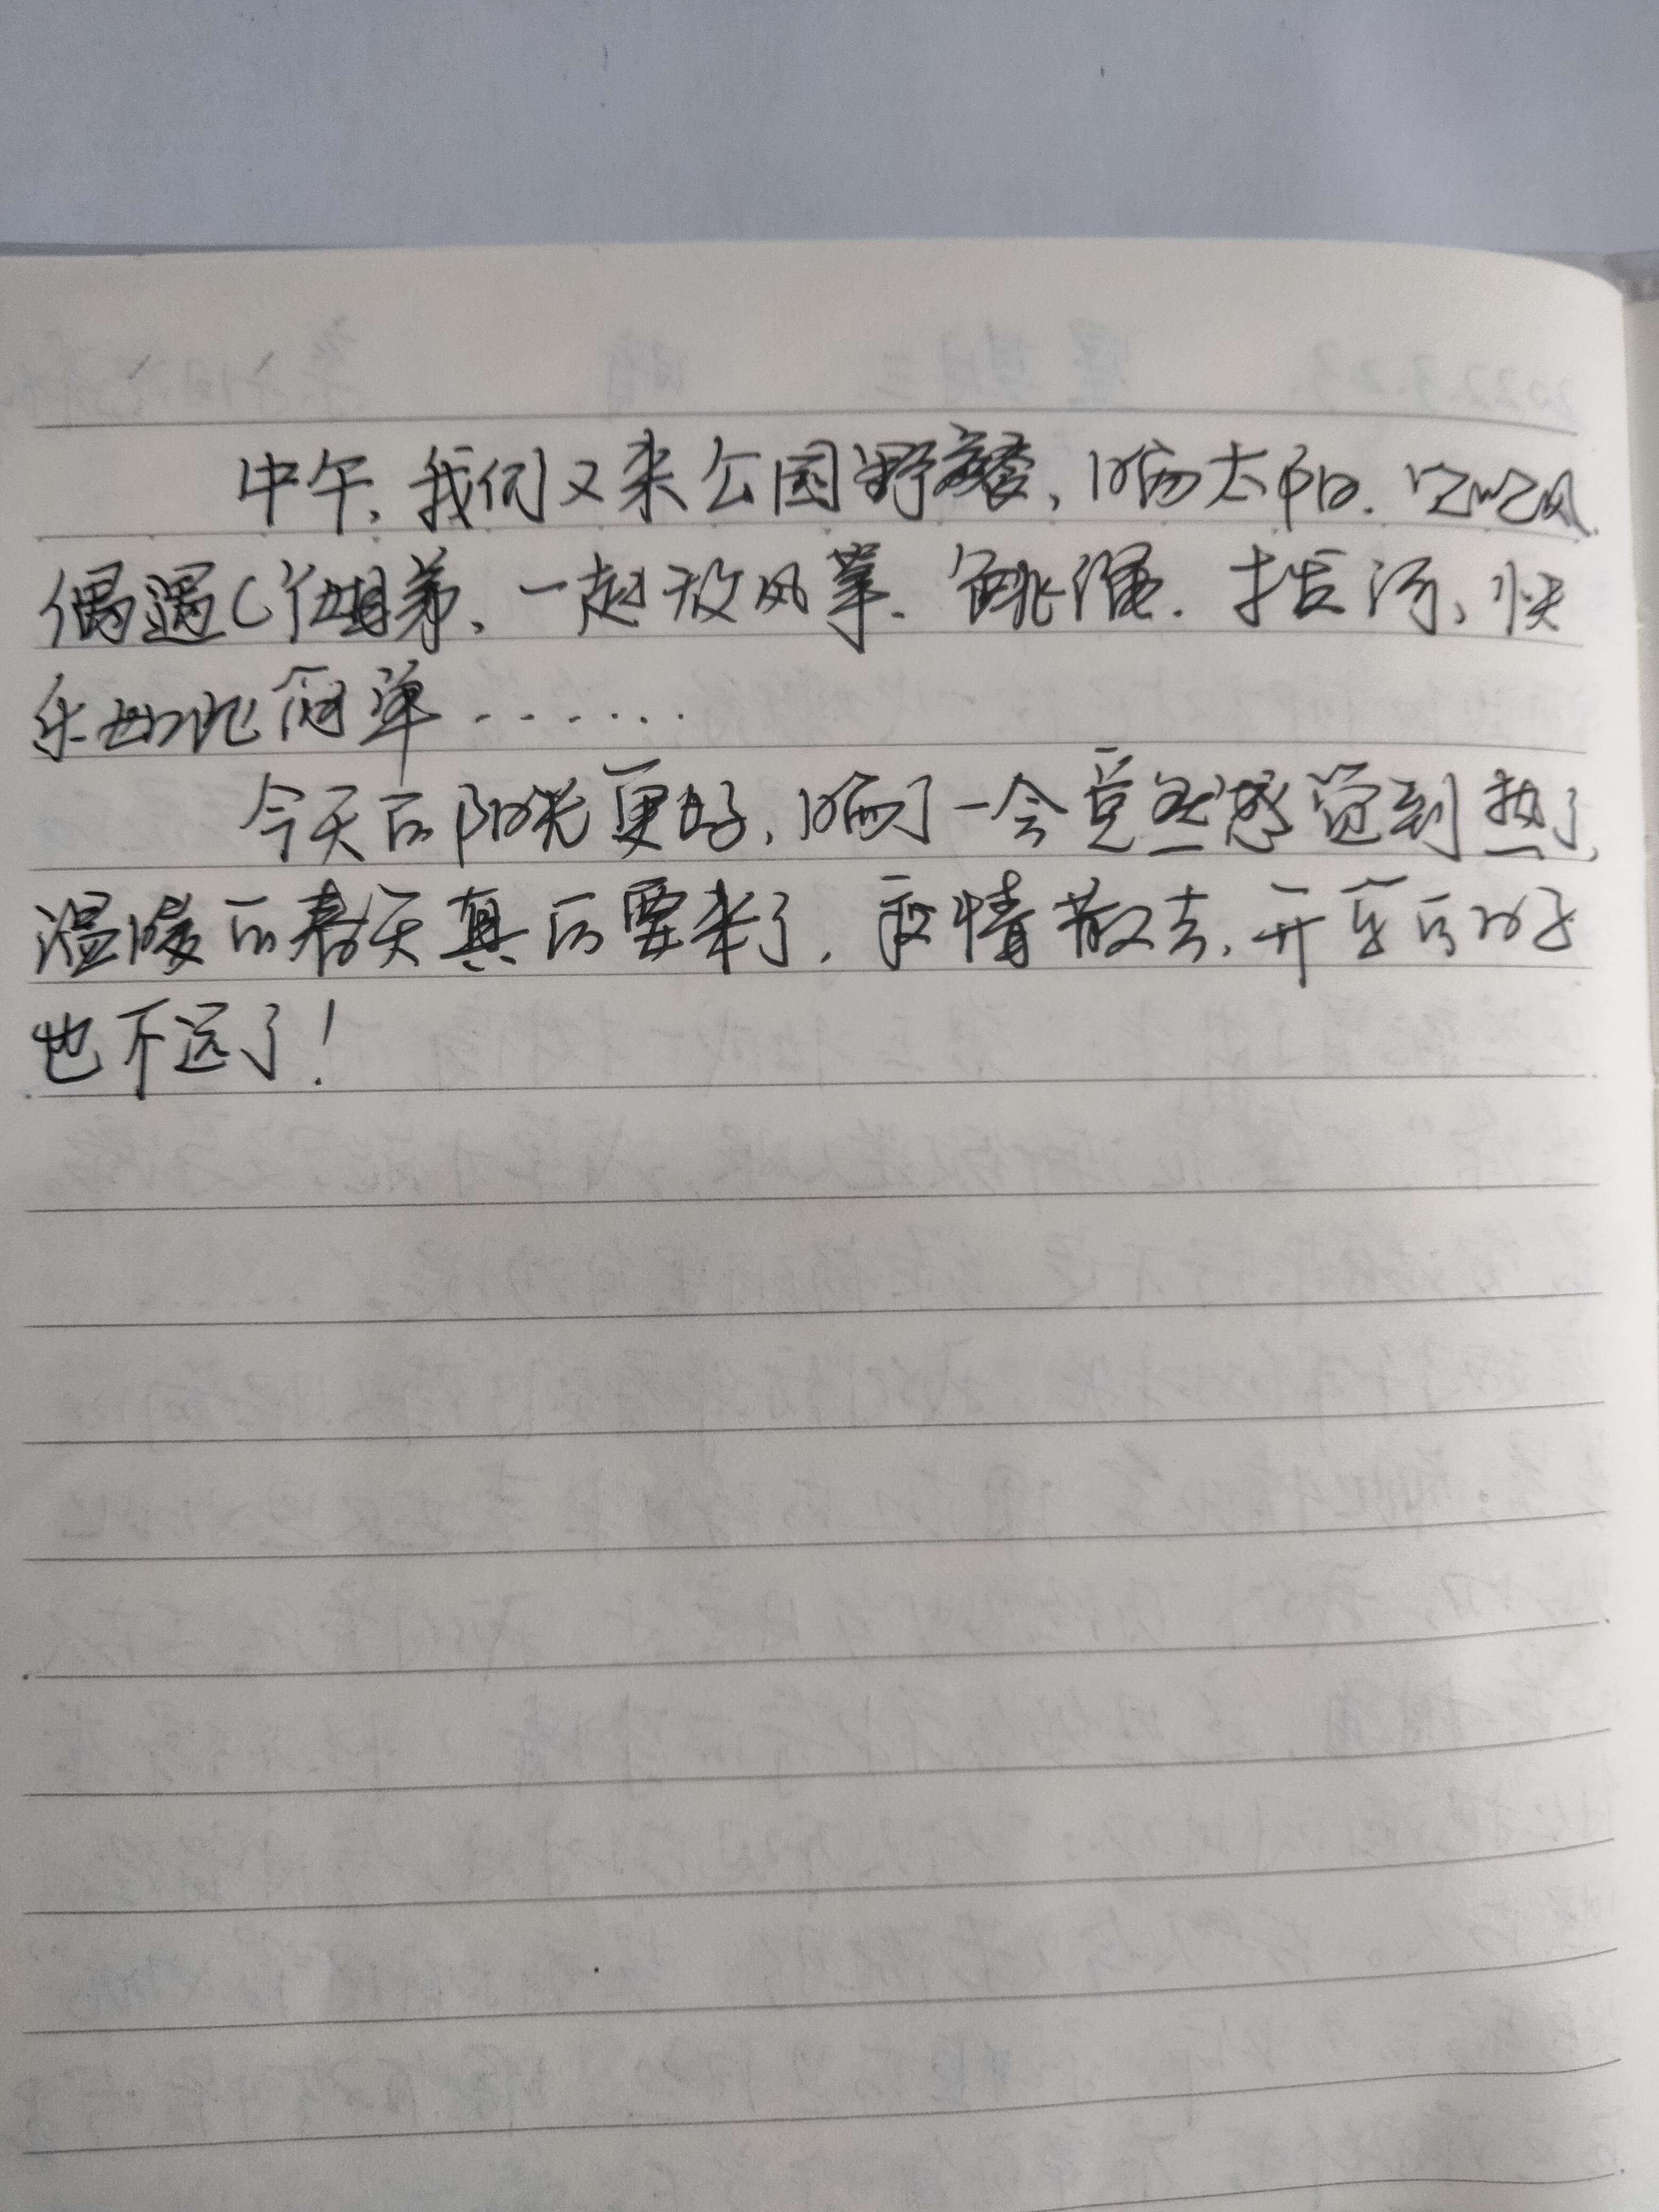 中午,我们又来公园野餐,晒太阳.吃吃风.
偶遇C仔姐弟,一起放风筝.跳绳.挖沙,快
乐如此简单.......
今天的阳光更好,晒了一会竟然感觉到热了,
温暖的春天真的要来了.疫情散去,开学的日子
也不远了!